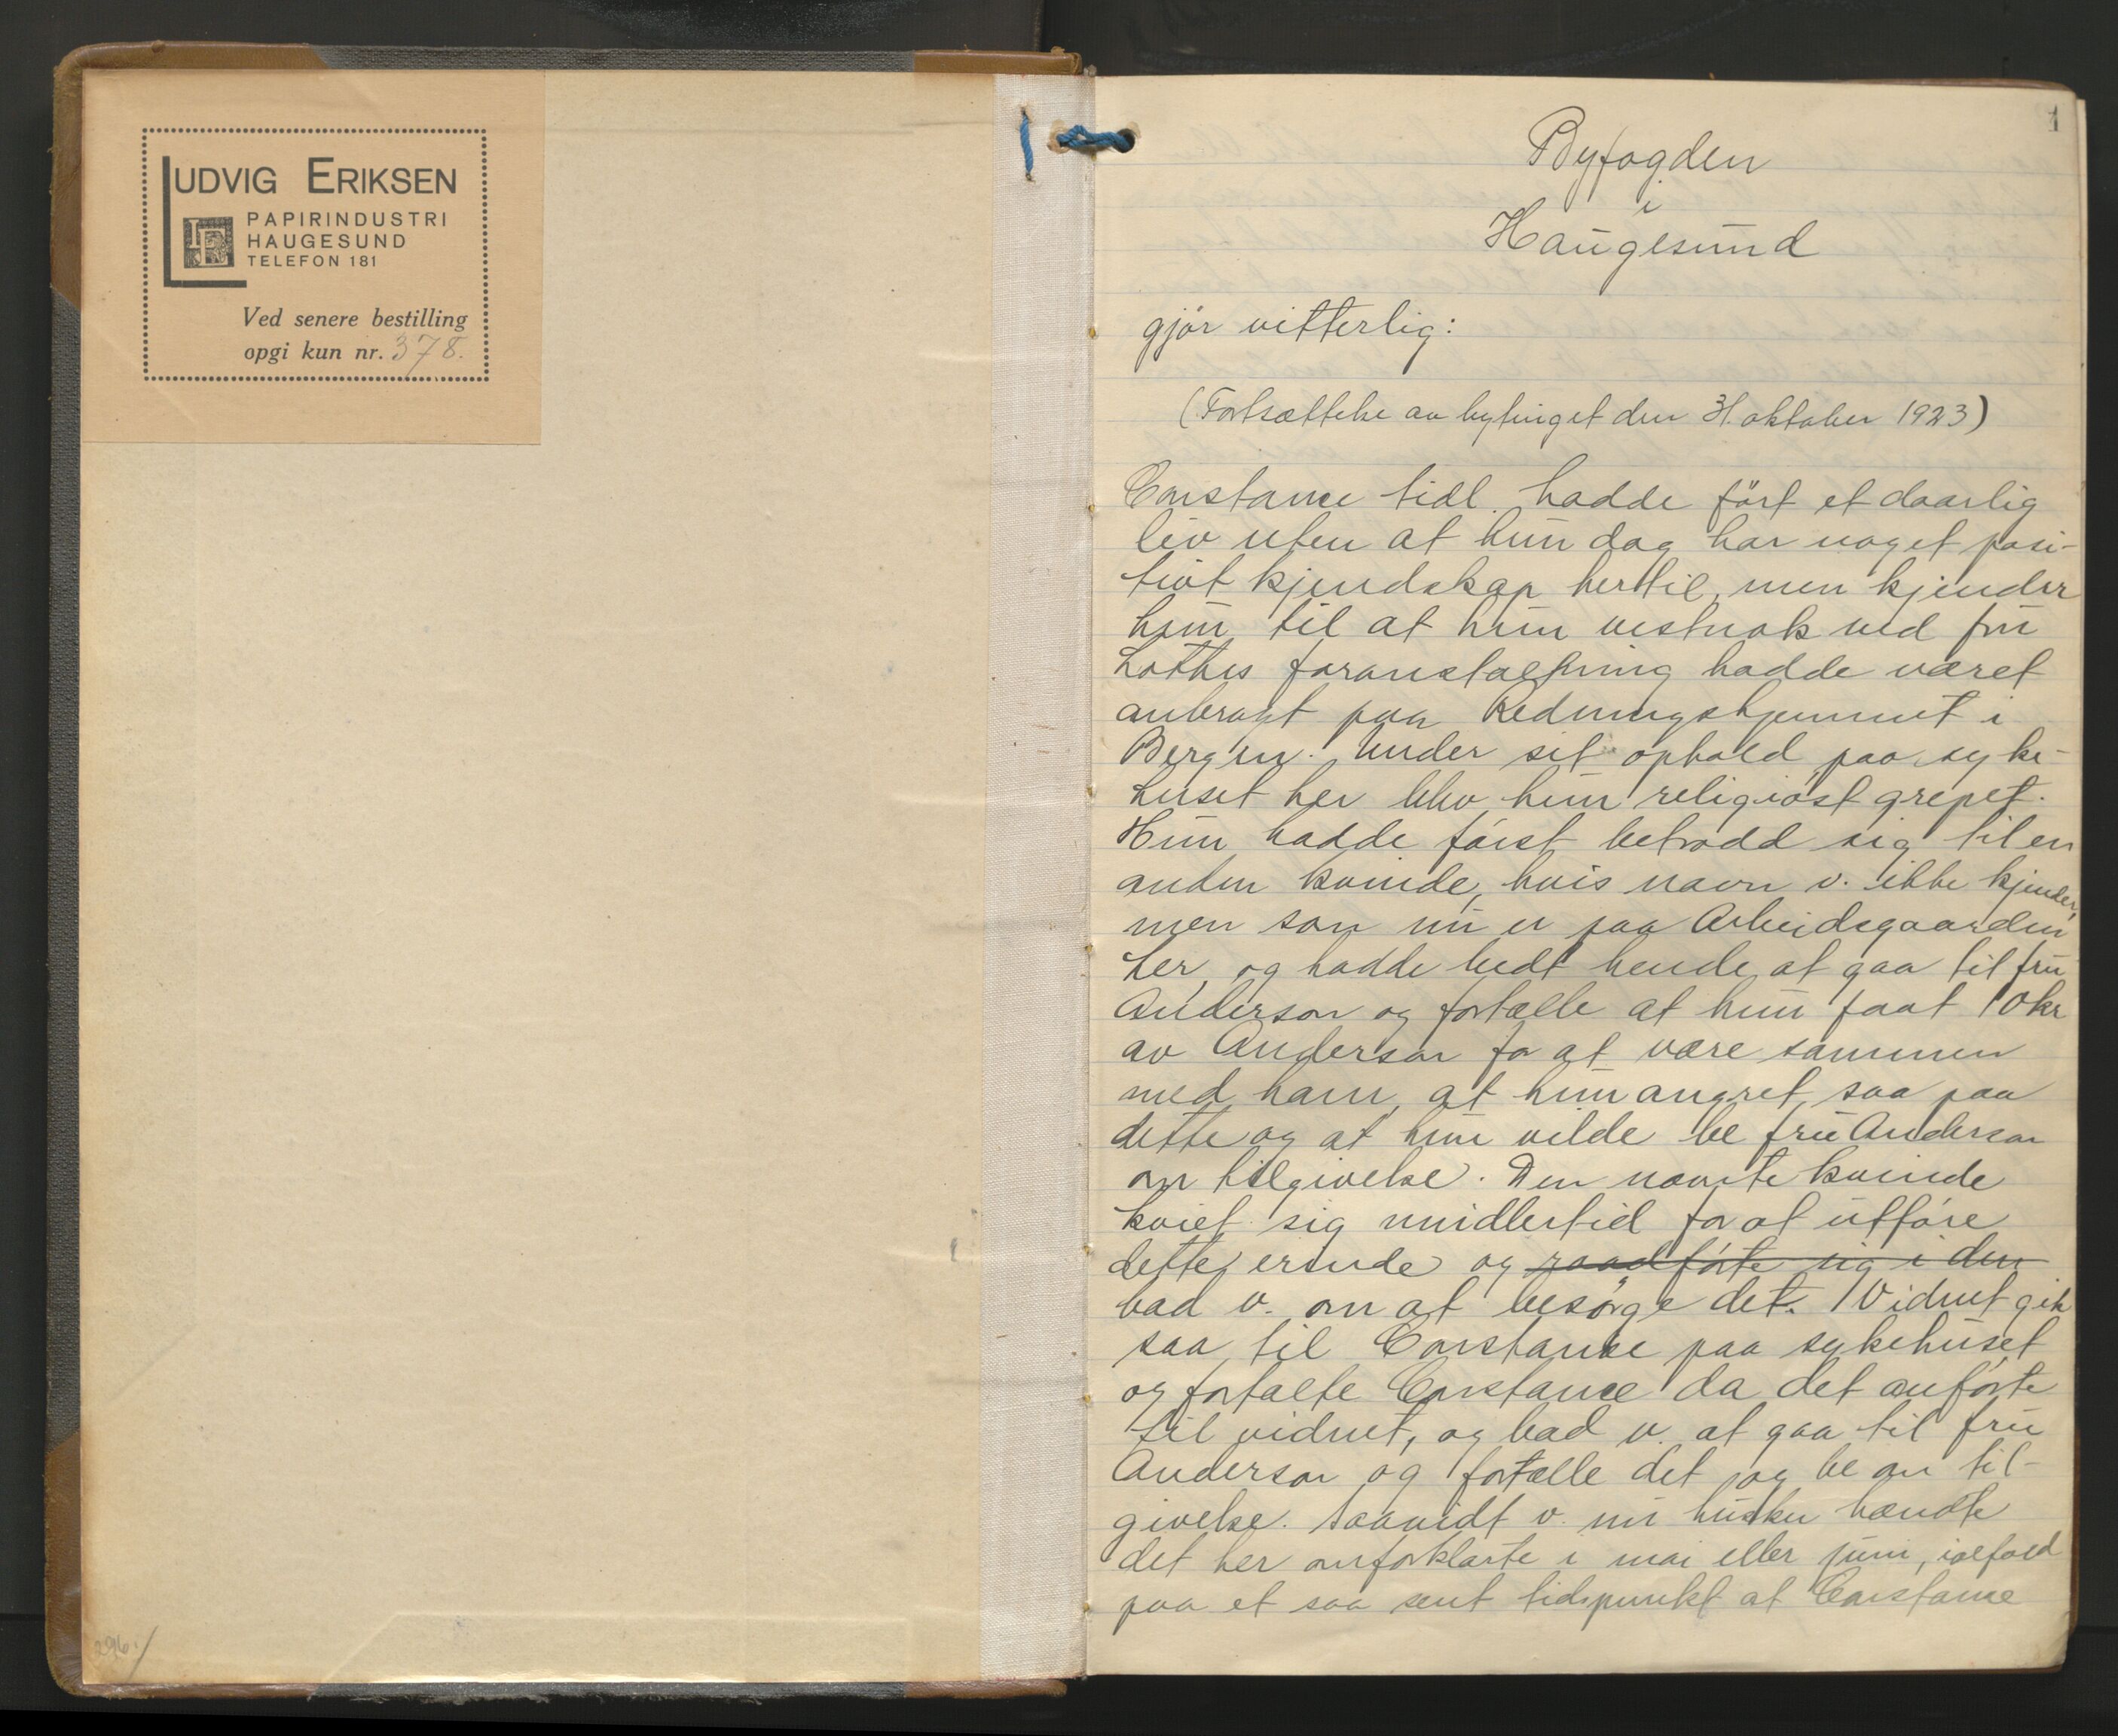 LUDVIG ERIKSEN
LE
PAPIRINDUSTRI
HAUGESUND
TELEFON 181
Ved senere bestilling
opgi kun nr. 378.
296./
1
Byfogden
i
Haugesund
gjør vitterlig:
(Fortsættelse av bytinget den 31. oktober 1923)
Constance tidl. hadde ført et daarlig
liv uten at hun dog har noget posi-
tivt kjendskap hertil, men kjender
hun til at hun vistnok ved fru
Lothes foranstaltning hadde været
anbragt paa Redningshjemmet i
Bergen. Under sit ophold paa syke-
huset her blev hun religiøst grepet.
Hun hadde først betrodd sig til en
anden kvinde, hvis navn v. ikke kjender,
men som nu er paa Arbeidsgaarden
her, og hadde bedt hende at gaa til fru
Anderson og fortælle at hun faat 10 kr
av Anderson for at være sammen
med ham, at hun angret saa paa
dette og at hun vilde be fru Anderson
om tilgivelse. Den nævnte kvinde
kviet sig imidlertid for at utføre
dette erinde og raadførte sig i den
bad v. om at besørge det. Vidnet gik
saa til Constance paa sykehuset
og fortalte Constance da det anførte
til vidnet, og bad v. at gaa til fru
Anderson og fortælle det og be om til-
givelse. Saavidt v. nu husker hændte
det her omforklarte i mai eller juni, ialfald
paa et saa sent tidspunkt at Constance